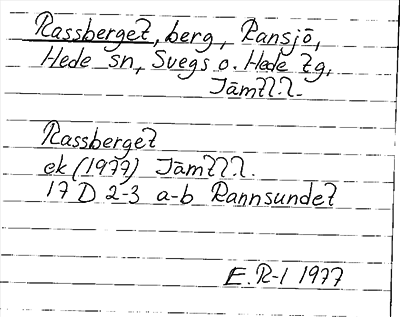 Rassberget, berg, Ransjö,
Hede sn, Svegs o. Hede tg,
Jämtl.l.
Rassberget
ek (1977) Jämtl.l.
17 D 2-3 a-b Rannsundet
E.R-l 1977